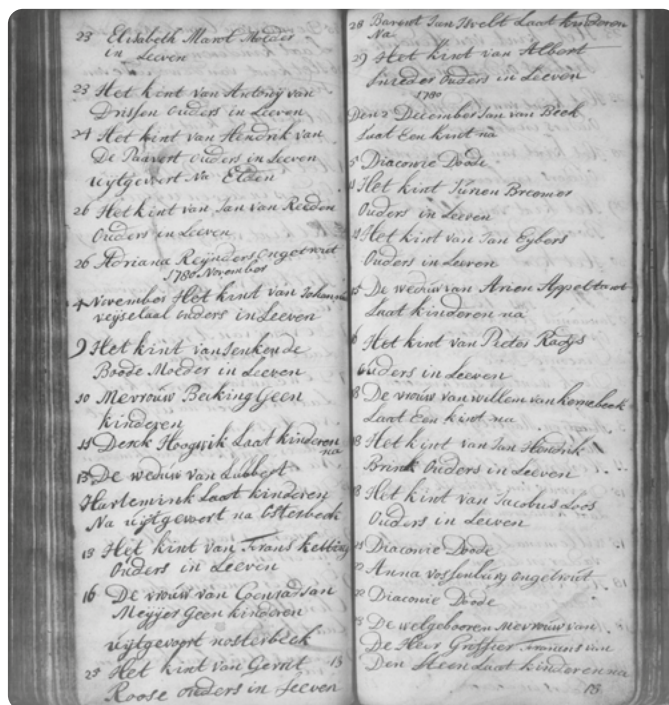 23 Elisabeth Marot Moeder
in Leeven
23 Het kint van Antony van
Drissen Ouders in Leeven
24 Het kint van Hendrik van
De Paavert ouders in Leeven
uijtgevoert Na Elden
26 Het kint van Jan van Reeden
Ouders in Leeven
26 Adriana Reijnders ongetrout
1780 November
4 November Het kint van
ouders in Leeven
9 Het kint van
Boode Moeder in Leeven
10 Mevrouw Beiking Geen
kinderen
11 Derck Hoogwik Laat kinderen
na
13 De weduw van Lubbert
Hartemink Laat kinderen
Na uijtgevoert na Osterbeek
13 Het kint van Frans ketting
Ouders in Leeven
16 De vrouw van Coenraad Jan
Meyjer Geen kinderen
uijtgevoert nosterbeek
25 Het kint van Gerrit
Roose ouders in Leeven
13
28 Barent Jan Laat kinderen
Na
29 Het kint van Albert
Snieder Ouders in Leeven
1780
Den 2 December Jan van Beek
Laat Een kint na
5 Diaconie Doode
Het kint Jurien Breomer
Ouders in Leeven
Het kint van Jan Eybers
Ouders in Leeven
15 De weduw van Arien
Laat kinderen na
6 Het kint van Pieter Radijs
Ouders in Leeven
8 De vrouw van willem van
Laat Een kint na
18 Het kint van Jan Hendrik
Brink Ouders in Leeven
18 Het kint van Jacobus Loos
Ouders in Leeven
Diaconie Doode
22 Anna vossenburg ongetrout
22 Diaconie Doode
De welgebooren Mevrouw van
De Heer Griffier van
Den Steen Laat kinderen na
13